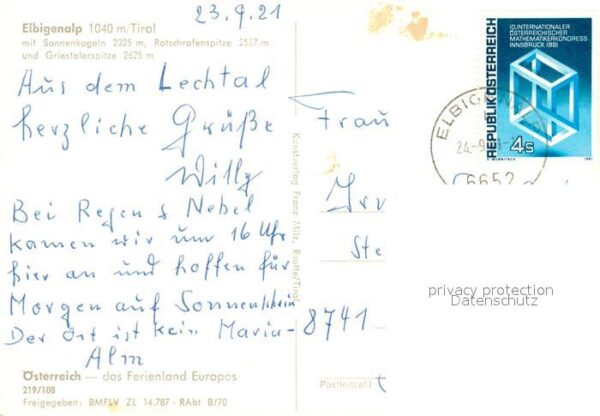 23.9.21
Elbigenalp 1040 m/Tirol
mit Sonnenkogeln 2325 m, Rotschrofenspitze 2587 m
und Griestalerspitze 2625 m
Aus dem Lechtal
herzliche Grüße
Willy
Bei Regen & Nebel
kamen wir um 16 Uhr
hier an und hoffen für
Morgen auf Sonnenschein
Der Ort ist kein Maria-
Alm
Österreich — das Ferienland Europas
219/108
Freigegeben: BMFLV ZL 14.787 - RAbt B/70
Kunstverlag Franz Milz, Reutte/Tirol
10. INTERNATIONALER
ÖSTERREICHISCHER
MATHEMATIKERKONGRESS
INNSBRUCK 1981
REPUBLIK ÖSTERREICH
4s
1981
ELBIGENALP
24.-9.
6652
Frau
Irr
Ste
8741
privacy protection
Datenschutz
Postleitzahl